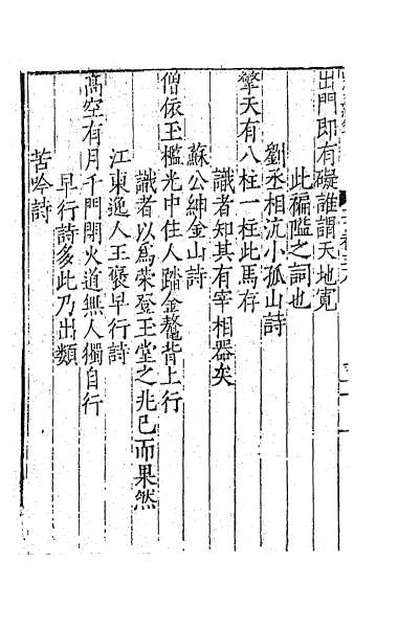 出門即有礙誰謂天地寛
此褊隘之詞也
劉丞相沆小孤山詩
擎天有八柱一柱此焉存
識者知其有宰相器矣
蘇公紳金山詩
僧依玉檻光中住人踏金鼇背上行
識者以爲榮登玉堂之兆已而果然
江東逸人王褒早行詩
高空有月千門閉大道無人獨自行
早行詩多此乃出類
苦吟詩